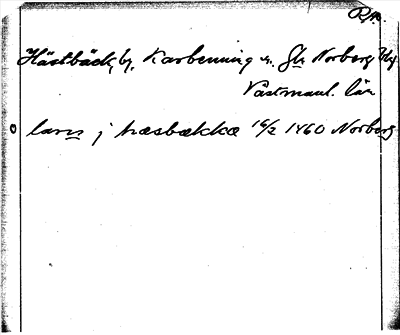 Hästbäck, by, Karbenning sn. Gla Norberg
Västmanl. län
lares j hæsbækka 16/2 1460 Norberg